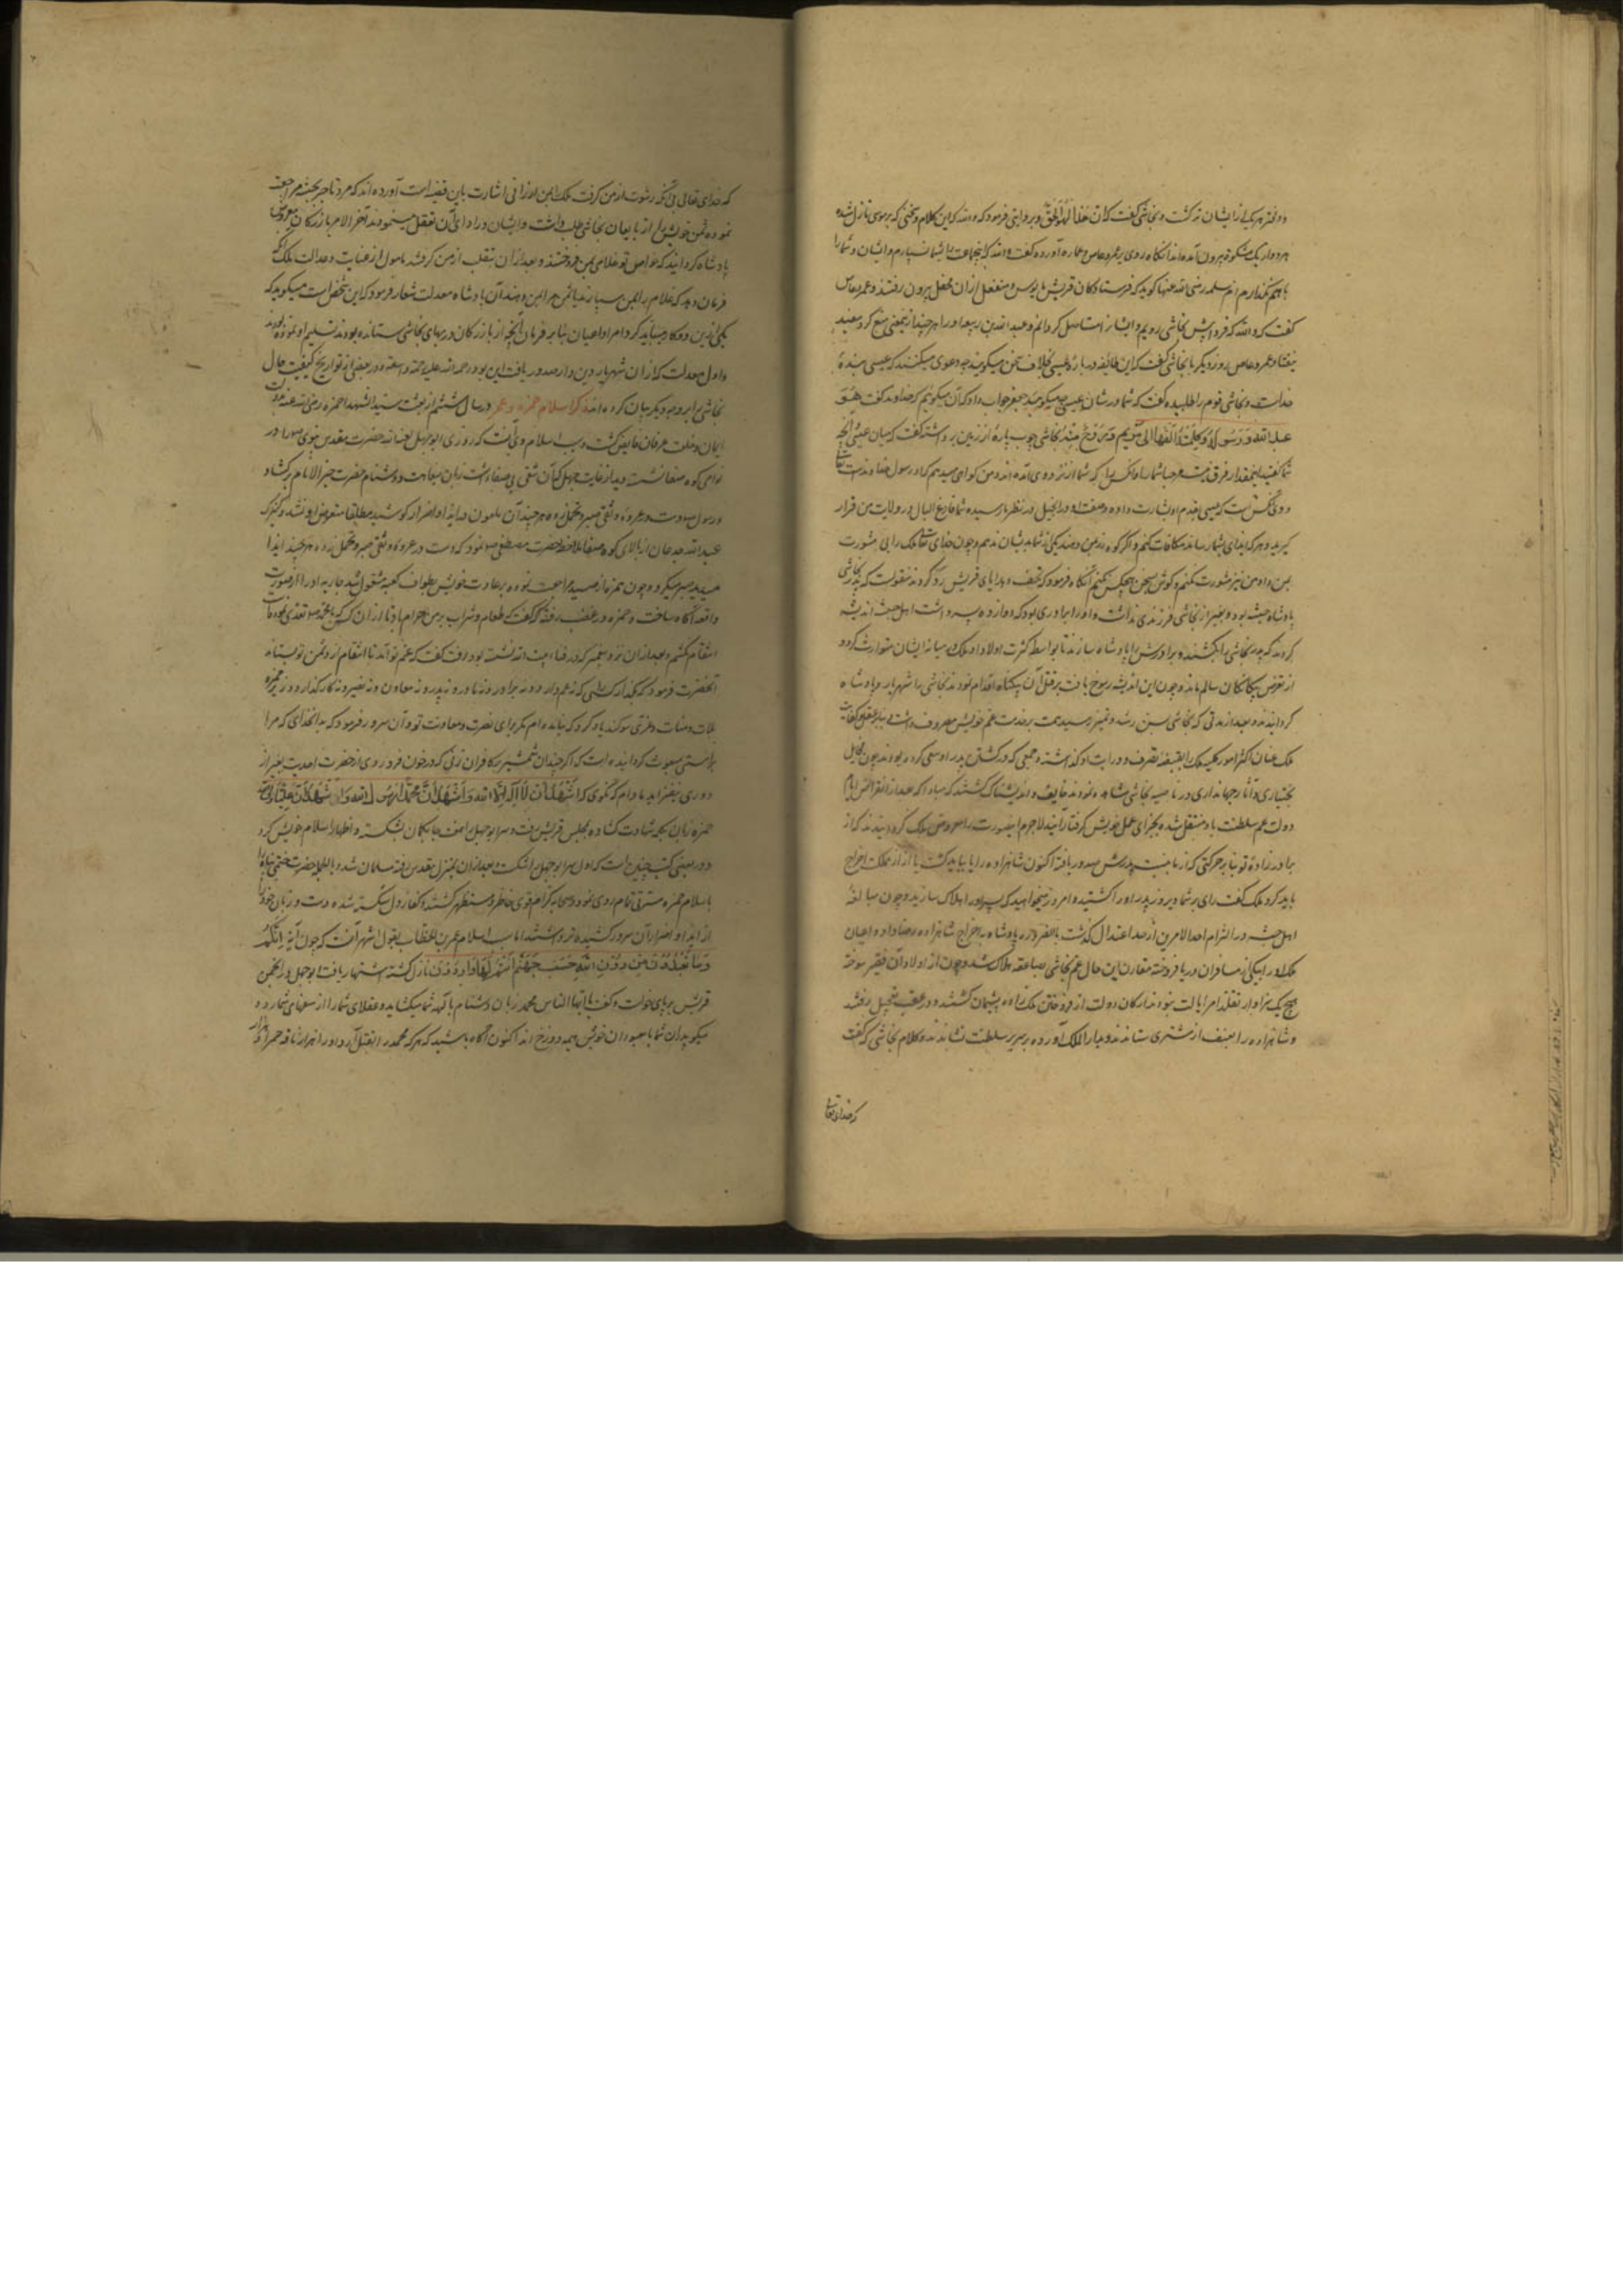 و دفتر هر یکی از ایشان نه گشت و نجاشی گفت که ان هذا لهو الحق و بروایتی فرمود که والله که این کلام و سخنی که بر موسی نازل شده
هر دو از یک مشکوة بیرون آمده اند آنگاه روی بر عمرو عاص و عماره آورده گفت والله که اینجماعت را بشما نسپارم و ایشان و شما را
با هم نگذارم ام سلمه رضی الله عنها گوید که فرستادگان قریش مایوس و منفعل از آن محفل بیرون رفتند و عمرو عاص
گفت که والله که فردا پیش نجاشی رویم و ایشان را مستاصل گردانم و عبد الله بن ربیعه او را هر چند از ینمعنی منع کرد مفید
نیفتاد عمرو عاص روز دیگر با نجاشی گفت که این طائفه در باره عیسی بخلاف سخن میگویند چه دعوی میکنند که عیسی بنده
خداست و نجاشی قوم را طلبیده گفت که شما در شان عیسی چه میگویید جعفر جواب داد که آن میگویم که خداوند گفت هو
عبد الله و رسوله و کلمته القاها الی مریم و روح منه نجاشی چوب پاره از زمین برداشته گفت که میان عیسی و آنچه
شما گفتید اینمقدار فرق نیست مرحبا شما را و آنکس را که شما از نزد وی آمده اند و من گواهی میدهم که او رسول خداوند است تعالی
و وی آنکس است که عیسی بقدم او بشارت داده و صفت او در انجیل در نظر ما رسیده شما فارغ البال در ولایت من قرار
گیرید و هر که ایذای بشما رساند مکافات کنم و اگر کوه زر بمن دهند یکی از شما بدیشان ندهم و چون خدای تعالی ملک را بی مشورت
بمن داد من نیز مشورت نکنم و گوش بسخن هیچکس نکنم آنگاه فرمود که تحف و هدایای قریش رد کردند منقولست که پدر نجاشی
پادشاه حبشه بود و بغیر از نجاشی فرزندی نداشت و او را برادری بود که دوازده پسر داشت اهل حبشه اندیشه
کردند که پدر نجاشی را بکشند و برادرش را پادشاه سازند تا بواسطه کثرت اولاد او ملک در میانه ایشان متوارث گردد
از تعرض بیگانگان سالم ماند و چون این اندیشه رسوخ یافت بر قتل آن بیگناه اقدام نمودند نجاشی را شهریار و پادشاه
گردانیدند و بعد از مدتی که نجاشی بسن رشد و تمیز رسید همت بر خدمت عم خویش مصروف داشت بنا بر عقل و کفایت
ملک عنان اکثر امور کلیه ملک را بقبضه تصرف و درایت او گذاشته و جمعی که در کشتن پدر او سعی کرده بودند چون مخایل
بختیاری و آثار جهانداری در ناصیه نجاشی مشاهده نمودند خایف و اندیشناک گشتند که مبادا که بعد از انقراض ایام
دولت عم سلطنت باو منتقل شده بجزای عمل خویش گرفتار آیند لاجرم اینصورت را معروض ملک گردانیدند که از
برادر زاده تو بنا بر حرکتی که از ما نسبت بپدرش صدور یافته اکنون شاهزاده را یا بباید کشت یا از مملکت اخراج
باید کرد ملک گفت رای بر شما دیروز پدر او را کشتید و امروز میخواهید که پسر او را هلاک سازید و چون مبالغه
اهل حبشه در التزام احد الامرین از حد اعتدال گذشت بالضرور پادشاه به اخراج شاهزاده رضا داد و اعیان
ملک او را بیکی از مسافران دریا فروخته مقارن این حال عم نجاشی بصاعقه هلاک شد و چون از اولاد آن فقیر سوخته
هیچ یک سزاوار تقلد امر ایالت نبودند ارکان دولت از فروختن ملک زاده پشیمان گشتند و در عقب بتعجیل رفتند
و شاهزاده را بعنف از مشتری ستاندند و بدار الملک آورده بر سریر سلطنت نشاندند و کلام نجاشی که گفت
که خدای تعالی
که خدای تعالی بی آنکه رشوت از من گرفت ملک بمن ارزانی اشارت باین قضیه است آورده اند که مرد تاجر بحبشه مراجعت
نموده ثمن خویش را از بایعان نجاشی طلب داشت و ایشان در ادای آن تعلل مینمودند آخر الامر بازرگان معروض
پادشاه گردانید که خواص تو غلامی بمن فروختند و بعد از آن بتغلب از من گرفتند مامول از عنایت و عدالت ملک آنکه
فرمان دهد که غلام را بمن سپارند یا ثمن مرا بمن دهند آن پادشاه معدلت شعار فرمود که این شخص راست میگوید که
یکی از این دو کار میباید کرد امرا و اعیان بنا بر فرمان آنچه از بازرگان در بهای نجاشی ستانده بودند تسلیم او نمودند
و اول معدلت که از آن شهریار دین دار صدور یافت این بود رحمه الله علیه رحمة واسعة و در بعضی از تواریخ کیفیت حال
نجاشی برین وجه دیگر بیان کرده اند ذکر اسلام حمزه و عمر در سال ششم از بعثت سید الشهدا حمزه رضی الله عنه بدولت
ایمان و خلعت عرفان فایض گشت و سبب اسلام وی آنست که روزی ابو جهل لعنه الله حضرت مقدس نبوی صلعم را در
نواحی کوه صفا نشسته دید از غایت جهل که آن شقی بی صفا داشت زبان بسفاهت و دشنام حضرت خیر الانام برگشاد
و رسول صلعم دست در عروه وثقی صبر و تحمل زده هر چند آن ملعون در ایذا و اضرار کوشید مطلقا متعرض او نشد و کنیزک
عبد الله جدعان از بالای کوه صفا ملاحظه حضرت مصطفی صلعم نمود که دست در عروه وثقی صبر و تحمل زده هر چند ایذا
میدید صبر میکرد و چون حمزه از صید مراجعت نموده بر عادت خویش بطواف کعبه مشغول شد جاریه او را از صورت
واقعه آگاه ساخت و حمزه در غضب رفته گفت که طعام و شراب بر من حرام باد تا از آن کس که با محمد تعدی نموده
انتقام نکشم و بعد از آن نزد پیغمبر که در خانه نشسته بود رفت گفت که عم تو آمد تا انتقام از دشمن تو بستاند
آنحضرت فرمود که بگذار کسی را که نه عم دارد و نه برادر و نه مادر و نه پدر و نه معاون و نه نصیر و نه کارگذار و وزیر حمزه
بلات و منات و عزی سوگند یاد کرد که نیامده ام مگر برای نصرت و معاونت تو و آن سرور فرمود که بدان خدای که مرا
براستی مبعوث گردانیده است که اگر چندان شمشیر بر کافران زنی که در خون فرو روی از حضرت احدیت بغیر از
دوری نیفزاید مادام که نگوئی که اشهد ان لا اله الا الله و اشهد ان محمدا رسول الله
حمزه زبان بکلمه شهادت گشاده بمجلس قریش رفت و سر ابو جهل را بضرب کمان بشکست و اظهار اسلام خویش کرد
و در بعضی کتب چنین است که اول سر ابو جهل را شکست و بعد از آن بمنزل مقدس رفته مسلمان شد و بالجمله حضرت ختمی پناه را
باسلام حمزه مسرتی تمام روی نمود و صحابه کرام قوی خاطر و مستظهر گشتند و کفار دل شکسته شده دست و زبان خود را
از ایذا و اضرار آن سرور کشیده تر داشتند اما سبب اسلام عمر بن الخطاب بقول اشهر آنست که چون آیه انکم
و ما تعبدون من دون الله حصب جهنم انتم لها واردون نازل گشته اشتهار یافت ابو جهل در انجمن
قریش برپای خواست و گفت یا ایها الناس محمد زبان دشنام بآلهه شما میگشاید و عقلای شما را از سفها می شمارد و
میگوید آن شما با معبودان خویش همه دوزخ اند اکنون آگاه باشید که هر که محمد را بقتل آرد او را هزار ناقه حمرا